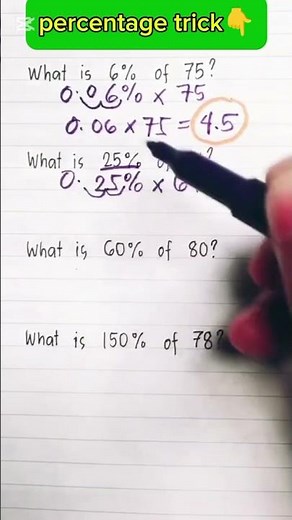 percentage trick👇
CapCut
What is 6% of 75?
0.06% × 75
0.06 × 75 = 4.5
What is 25% ?
0.25% × 6
What is 60% of 80?
What is 150% of 78?